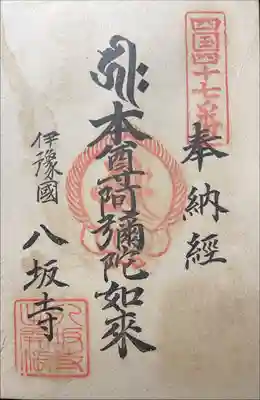 四国四十七番
奉納經
本尊阿彌陀如來
伊豫國
八坂寺